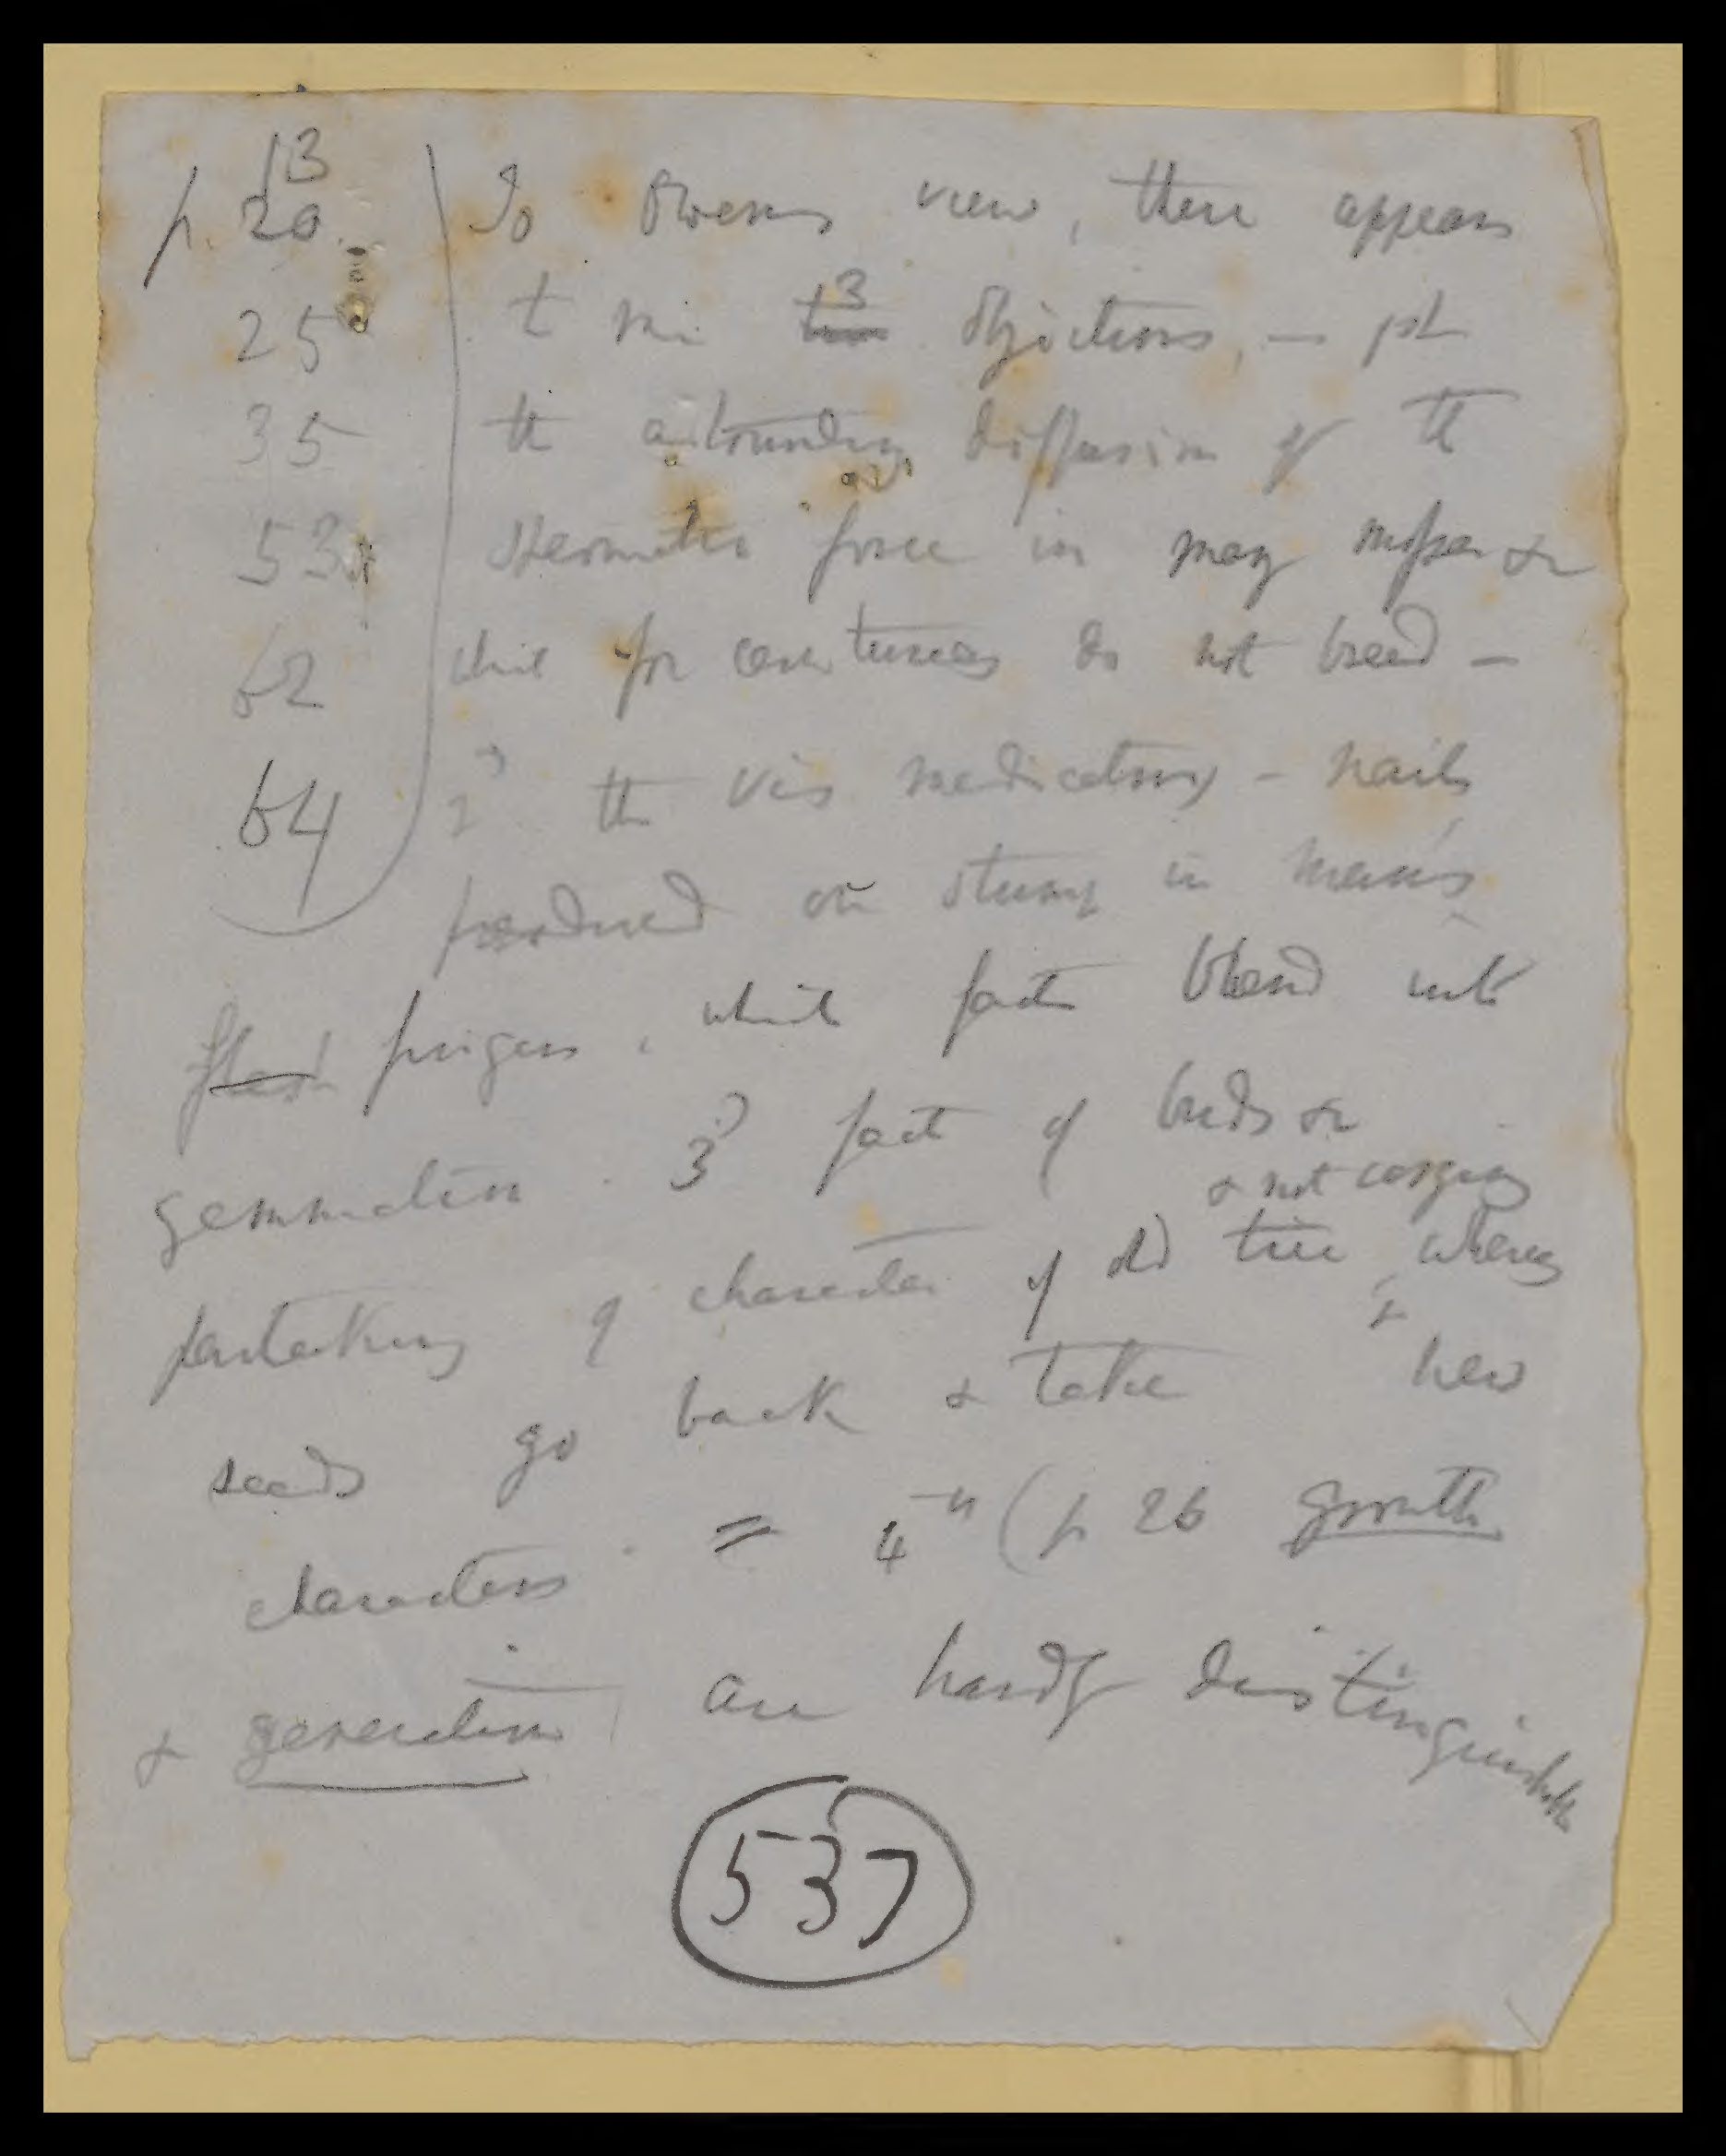 13
p. 20.
25
35
53
62
64
To Owens view, there appears
to me 3 objections, — 1st
the astounding diffusion of the
spermatic force in many mosses &c
which for centuries do not breed —
2) the vis medicatrix — nails
produced on stump in man's
fingers, which facts blend into
gemmation. 3) fact of buds &c
& not larger
partaking of character of old tree, whereas
seeds go back & take new
characters = 4th (p 26 growth
& generation are hardly distinguishable
537